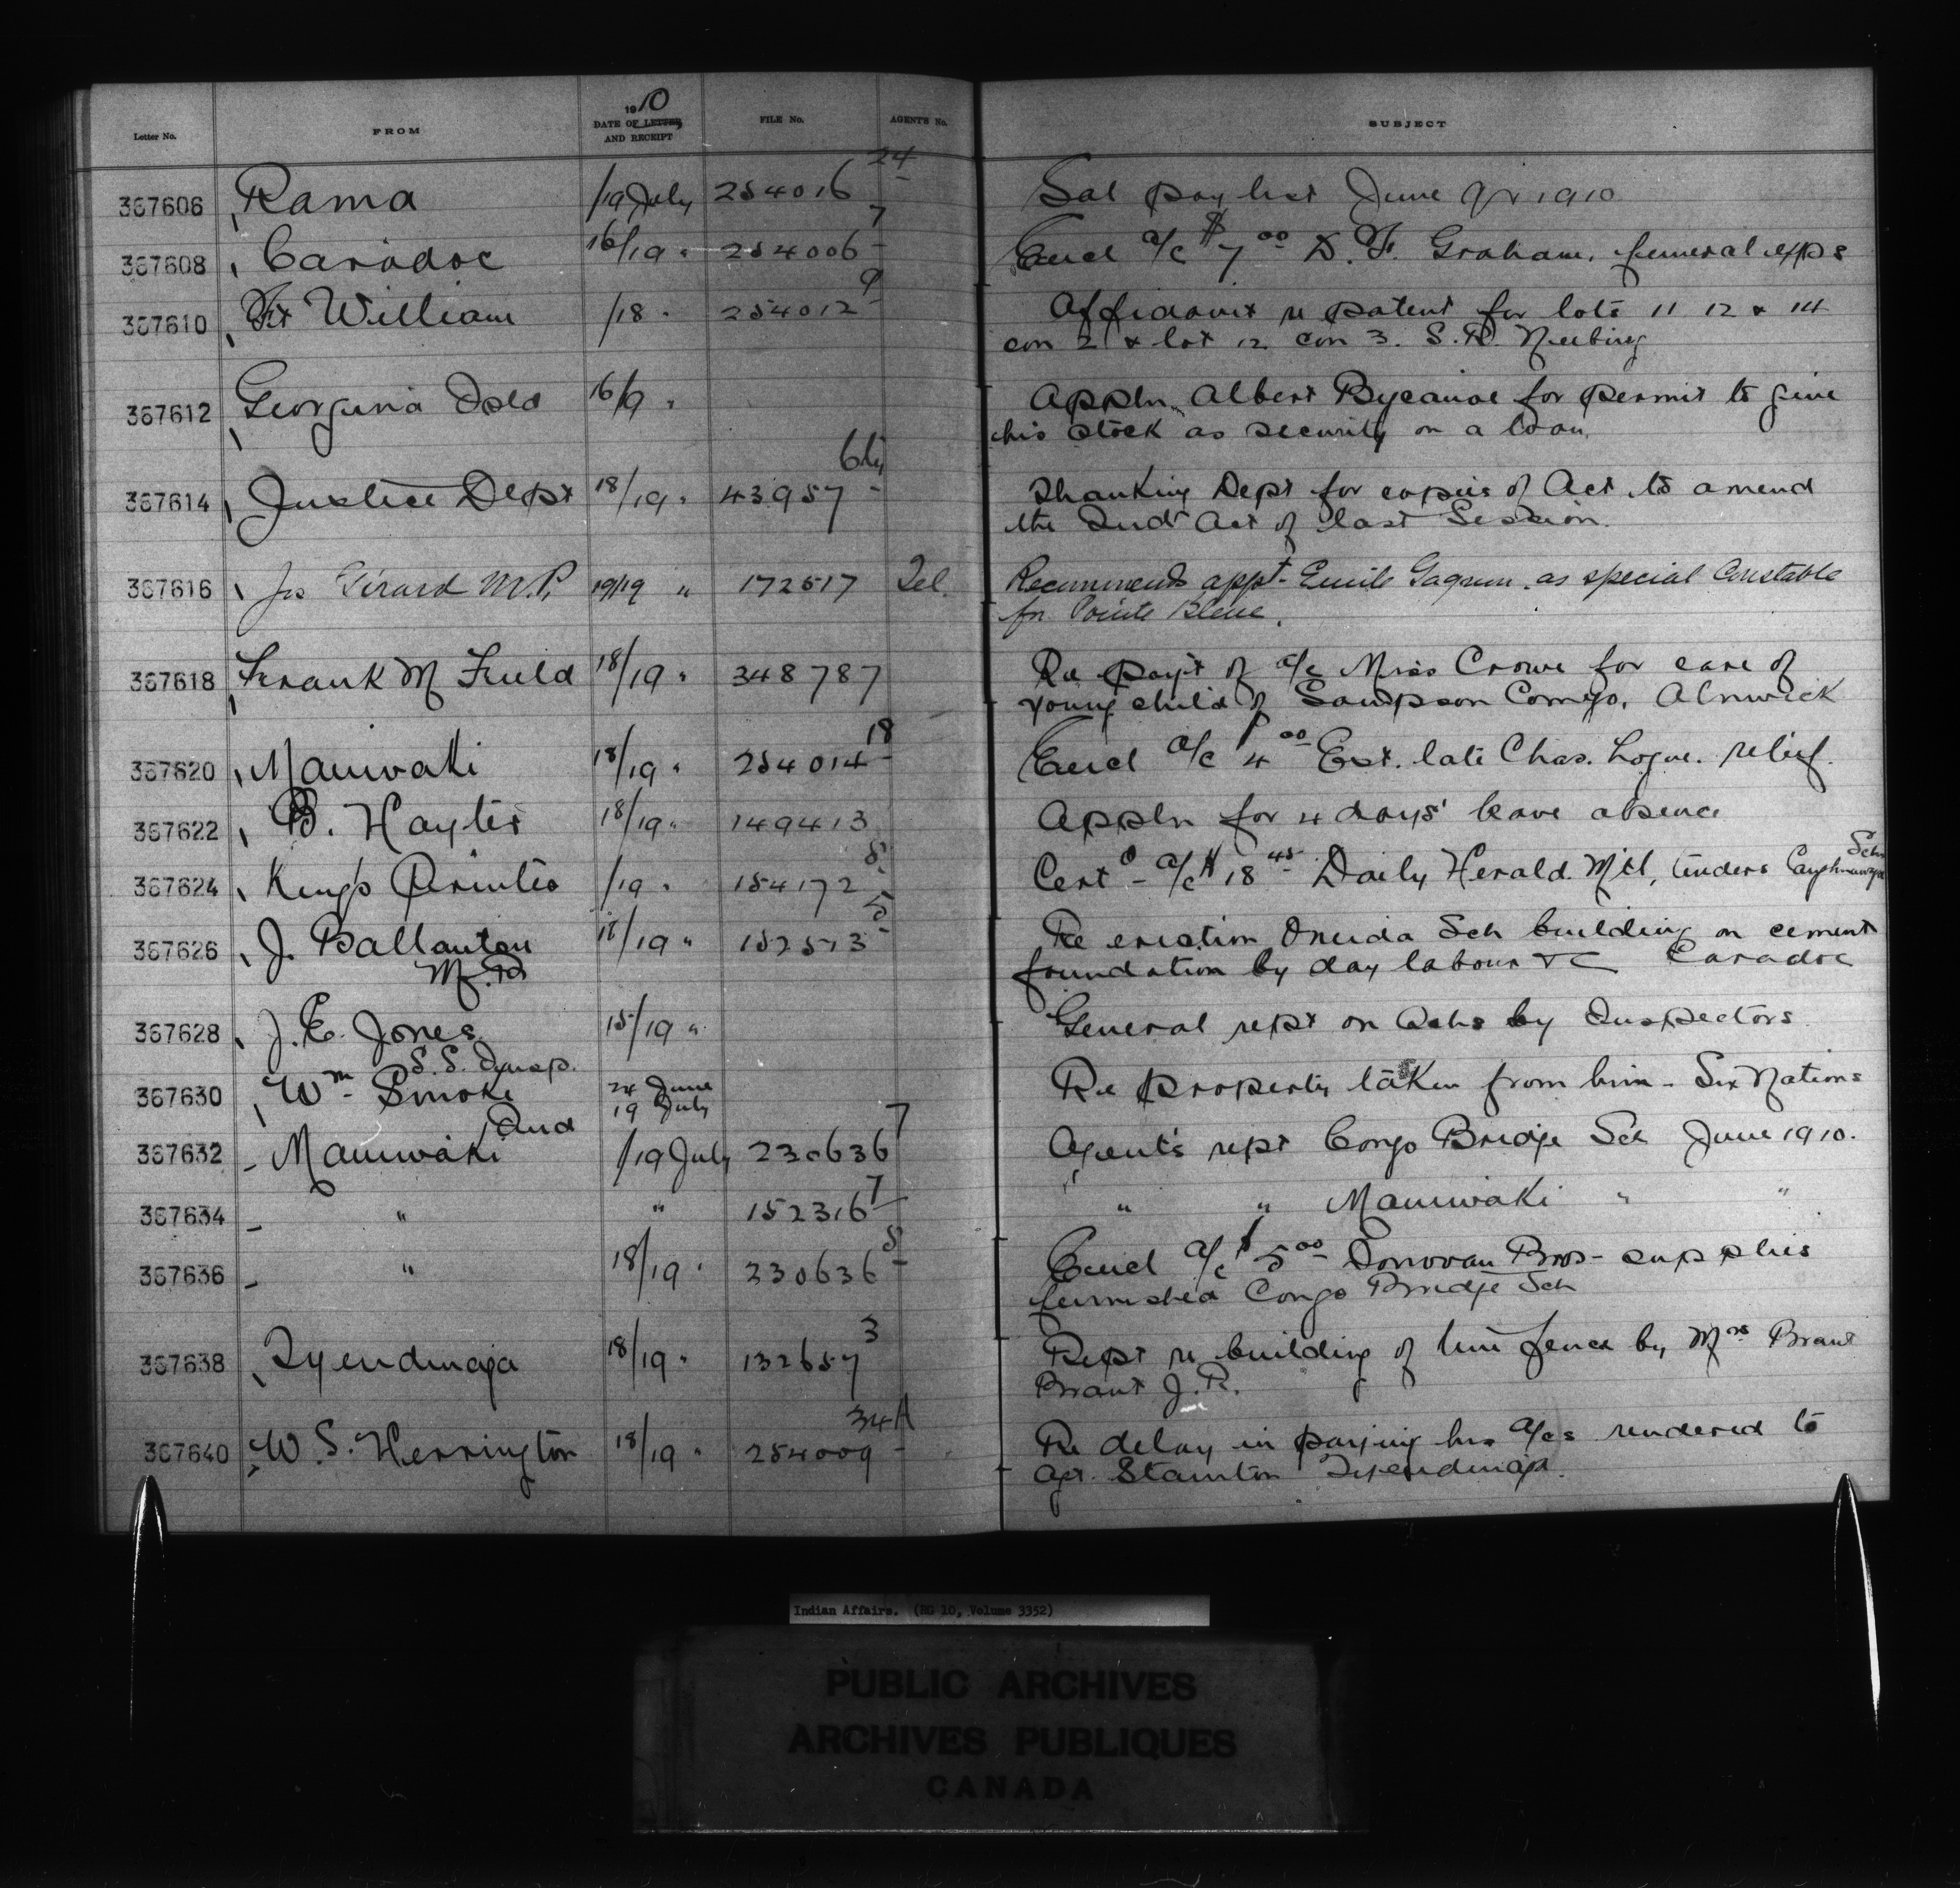 Letter No. FROM 1910 DATE OF LETTER AND RECEIPT FILE No. AGENT'S No. SUBJECT
367606 Rama /19 July 254016 24 Sal pay list June Qr 1910
367608 Caradoc 16/19 " 254006 7 Encl a/c $7 00 D. F. Graham, funeral exps
367610 Ft William /18 " 254012 9 Affidavit re patent for lots 11 12 & 14
con 2 & lot 12 con 3. S.R. Neebing
367612 Georgina Isld 16/9 " Appln Albert Bigcanoe for permit to give
his stock as security on a loan.
367614 Justice Dept 18/19 " 43957 Thanking Dept for copies of Act to amend
the Ind Act of last Session.
367616 Jos Girard M.P. 19/19 " 172517 Tel. Recommends appt Emile Gagnon as special Constable
for Pointe Bleue.
367618 Frank M Field 18/19 " 348787 Re payt of a/c Miss Crowe for care of
young child of Sampson Comego, Alnwick
367620 Maniwaki 18/19 " 254014 18 Encl a/c $4 00 Est. late Chas. Logue. relief.
367622 B. Hayter 18/19 " 149413 Appln for 4 days' leave absence
367624 King's Printer /19 " 154172 8 Cert - a/c $18 45 Daily Herald Mtl, tenders Caughnawaga Sch
367626 J. Ballantyne 18/19 " 152513 5 Re erection Oneida Sch building on cement
M.P. foundation by day labour &c Caradoc
367628 J. E. Jones 15/19 " General rept on Schs by Inspectors
S.S. Insp.
367630 Wm Smoke 24 June Re property taken from him - Six Nations
Ind 19 July
367632 Maniwaki /19 July 230636 7 Agent's rept Congo Bridge Sch June 1910.
367634 " " 152316 7 " " Maniwaki " "
367636 " 18/19 " 230636 8 Encl a/c $5 00 Donovan Bros - supplies
furnished Congo Bridge Sch
367638 Tyendinaga 18/19 " 132657 3 Rept re building of line fence by Mrs Brant
Brant J.R.
367640 W. S. Herrington 18/19 " 254009 34A Re delay in paying his a/cs rendered to
Agt. Stainton Tyendinaga.
Indian Affairs. (RG 10, Volume 3352)
PUBLIC ARCHIVES
ARCHIVES PUBLIQUES
CANADA